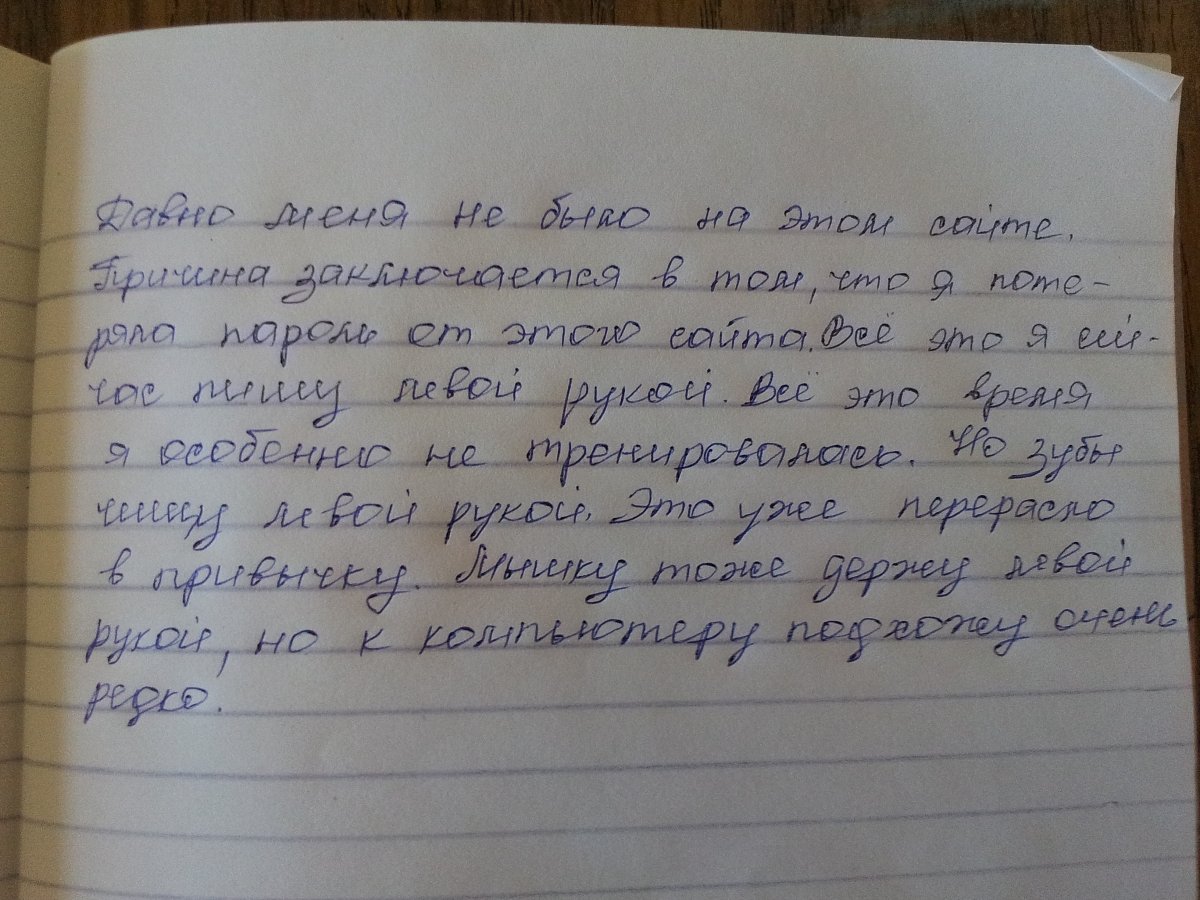 Давно меня не было на этом сайте.
Причина заключается в том, что я поте-
ряла пароль от этого сайта. Всё это я сей-
час пишу левой рукой. Всё это время
я особенно не тренировалась. Но зубы
чищу левой рукой. Это уже переросло
в привычку. Мышку тоже держу левой
рукой, но к компьютеру подхожу очень
редко.